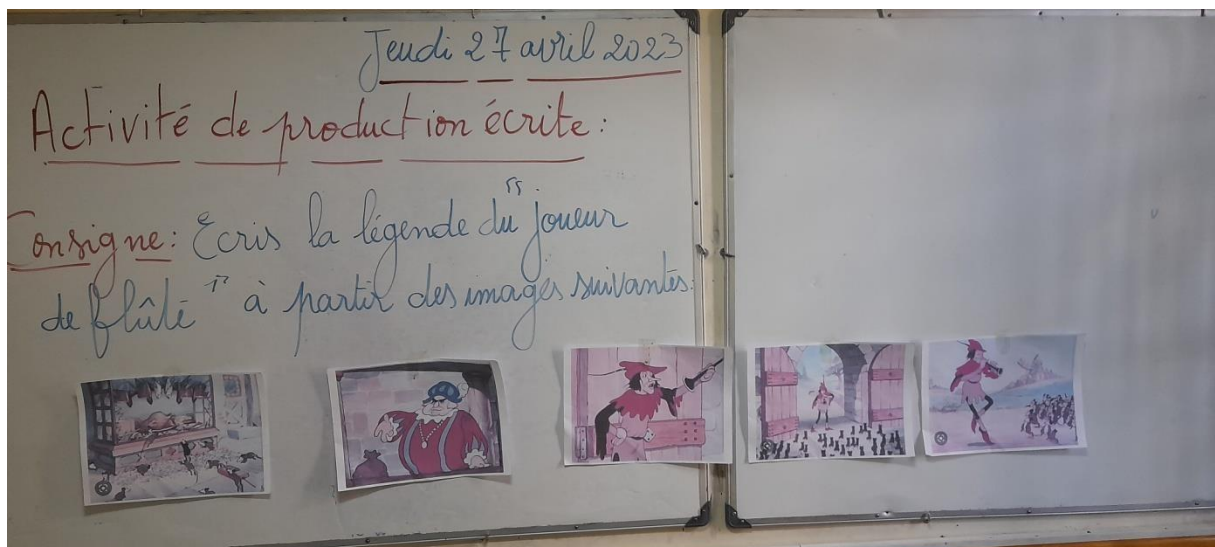 Jeudi 27 avril 2023
Activité de production écrite :
Consigne : Ecris la légende du "joueur
de flûte" à partir des images suivantes.